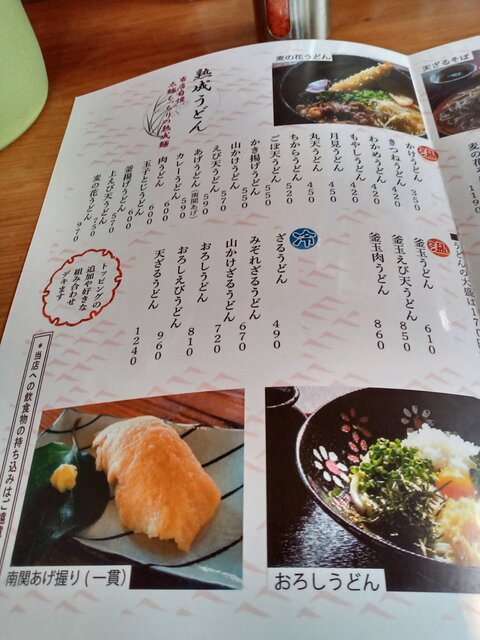 麦の花うどん
天ざるそば
熟成うどん
当店自慢
太麺もっちりの熟成麺
温
かけうどん 350
きつねうどん 420
わかめうどん 420
もやしうどん 420
月見うどん 450
丸天うどん 450
ちからうどん 520
ごぼ天うどん 520
かき揚げうどん 550
山かけうどん 550
えび天うどん 570
あげうどん(南関あげ) 590
カレーうどん 550
肉うどん 600
玉子とじうどん 600
釜揚げうどん 570
上えび天うどん 750
麦の花うどん 970
温
釜玉うどん 610
釜玉えび天うどん 850
釜玉肉うどん 860
冷
ざるうどん 490
みぞれざるうどん 670
山かけざるうどん 720
おろしうどん 810
おろしえびうどん 960
天ざるうどん 1240
トッピングの
追加や好きな
組み合わせ
デキます
■うどんの大盛は170円
*当店への飲食物の持ち込みはご遠慮
南関あげ握り(一貫)
おろしうどん